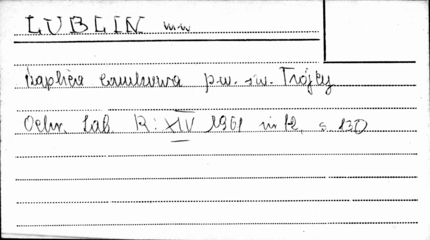 LUBLIN m.w
Kaplica zamkowa p.w. św. Trójcy
Ochr. Zab. R: XIV 1961 nr 2, s. 130